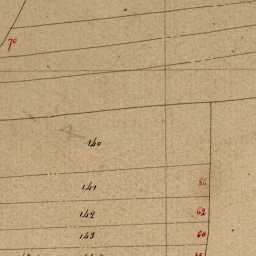 70
140
141
142
62
143
60